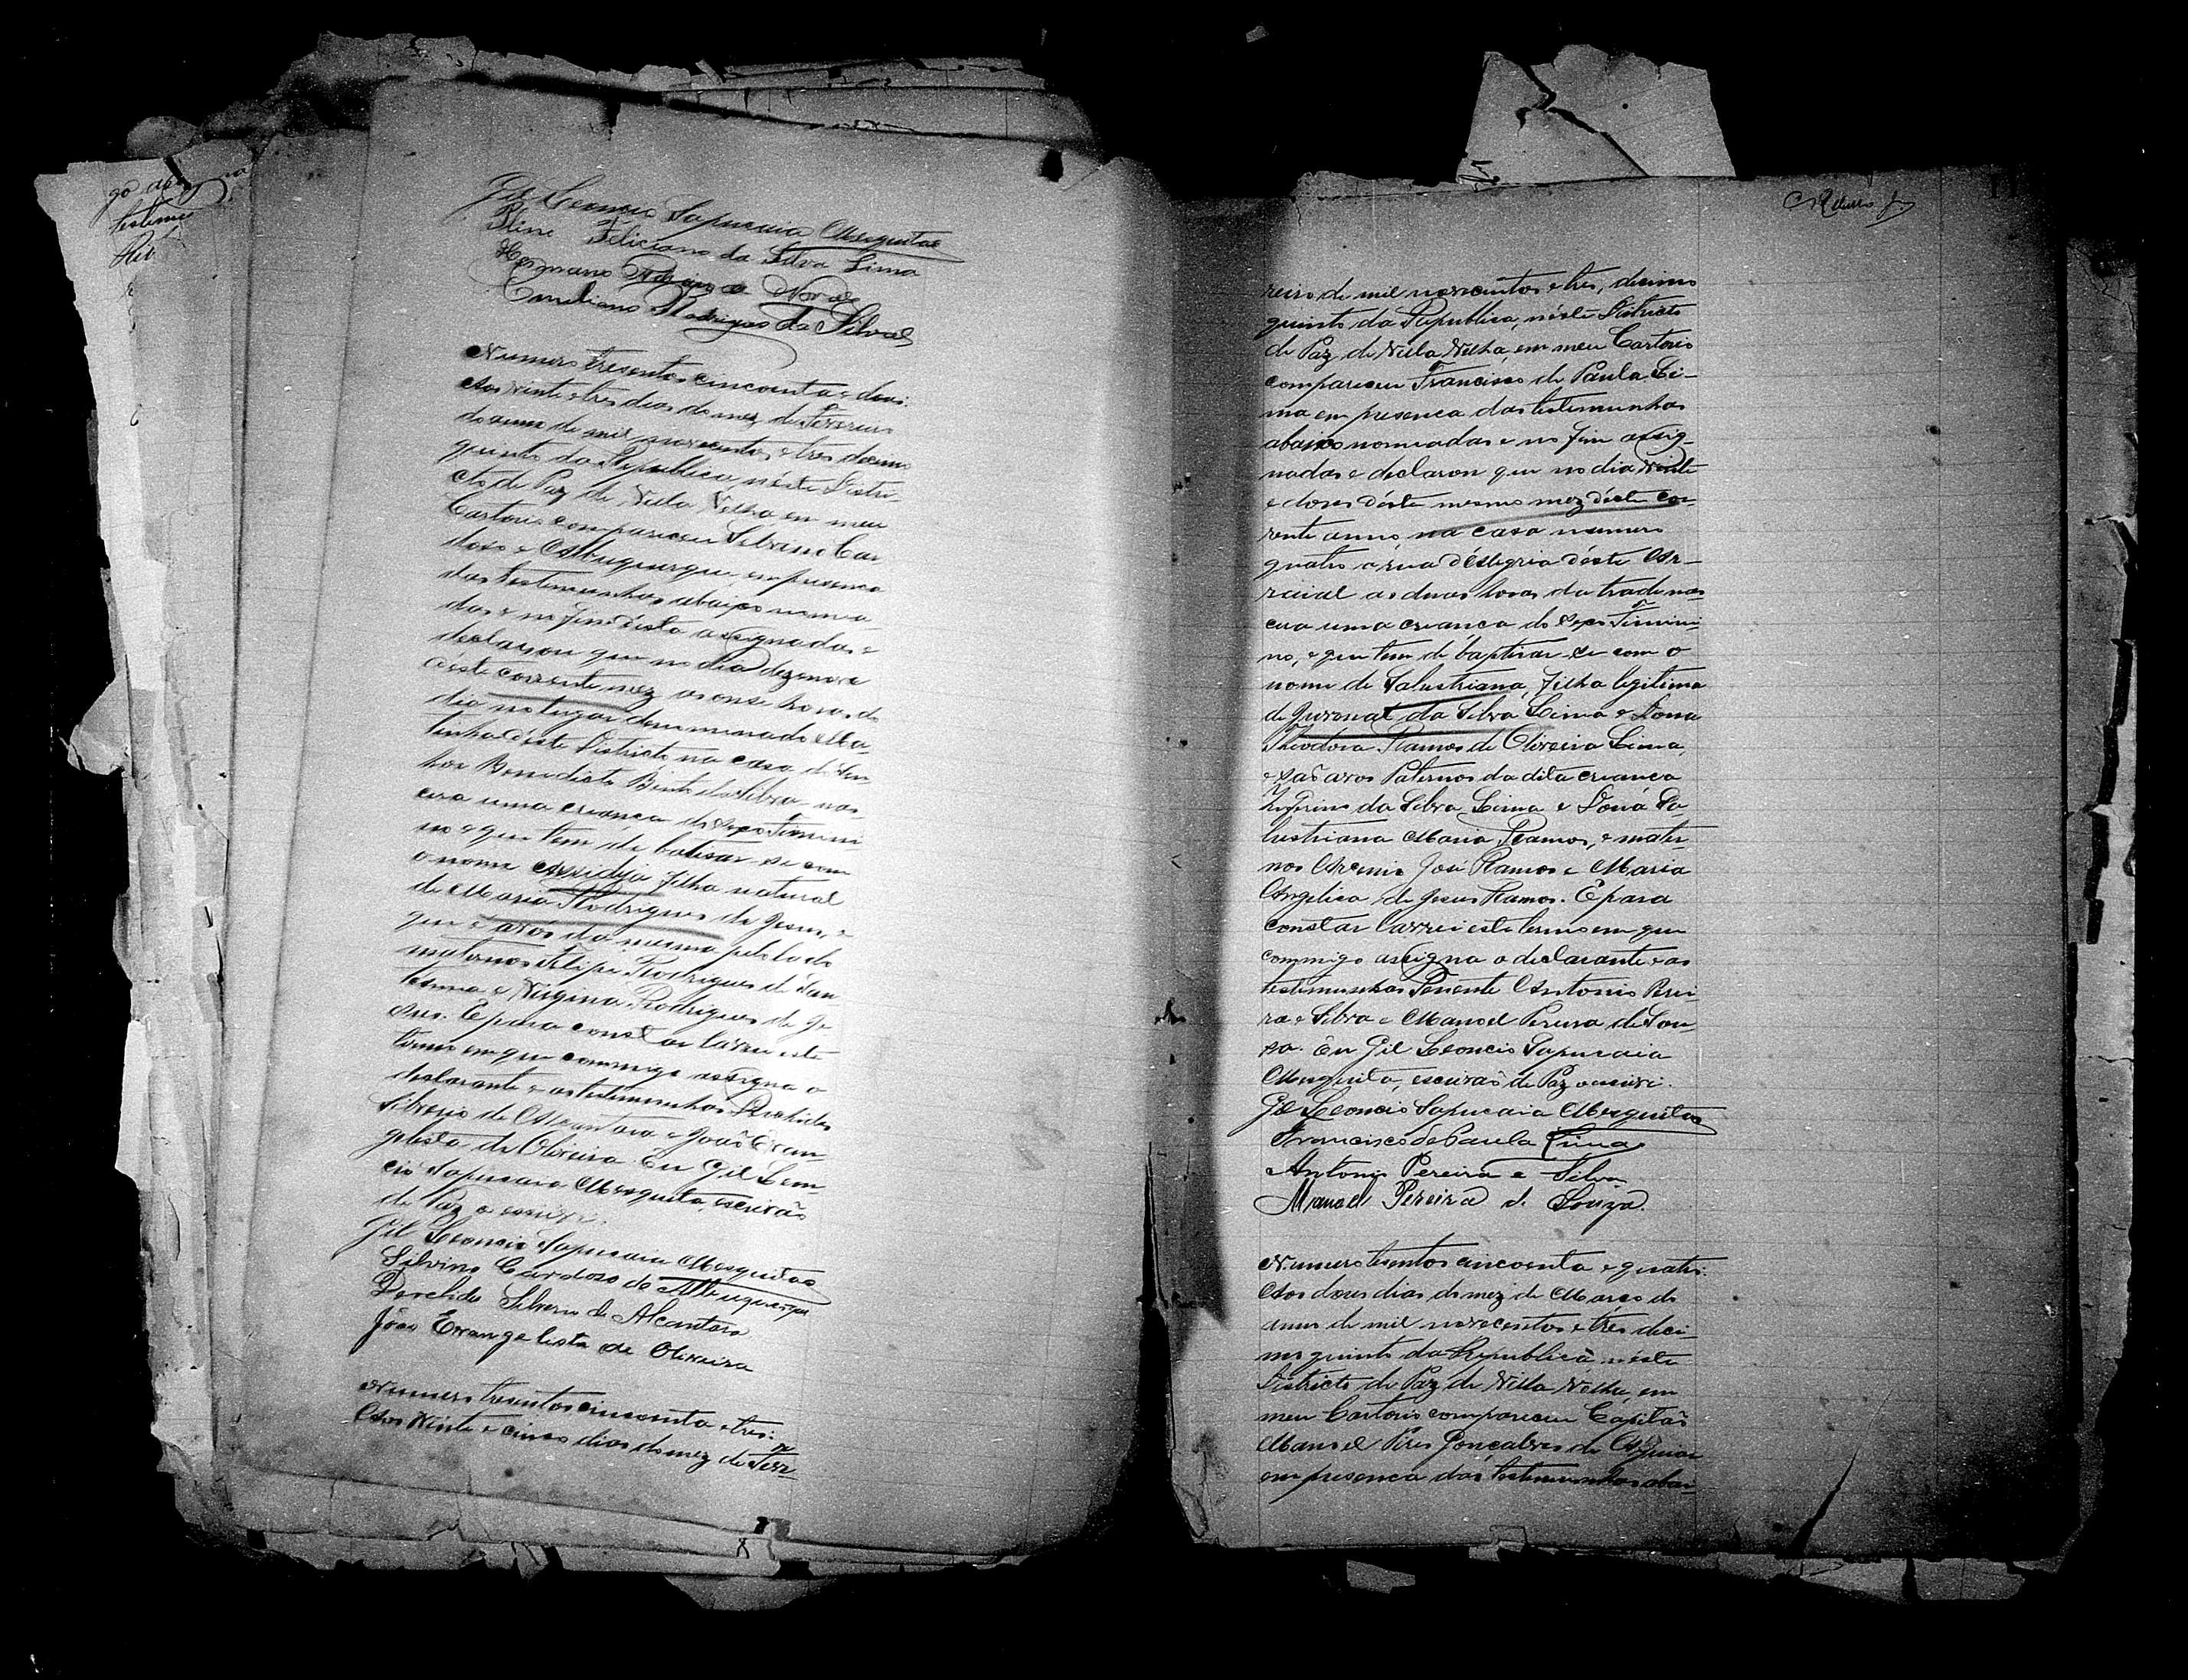 Gil Leoncio Sapucaia Mesquita
Feliciano da Silva Lima
Emiliano Rodrigues da Silva
Numero tresentos cincoenta e dois.
Aos vinte e tres dias do mez de Fevereiro
do anno de mil novecentos e tres decimo
quinto da Republica, néste Distri-
cto de Paz de Villa Velha, em meu
Cartorio compareceu Silvino Car
doso e Albuquerque, em presença
das testemunhas abaixo nomea
das e no fim désta assignadas e
declarou que no dia dezenove
déste corrente mez as onze horas do
dia no lugar denominado
déste Districto, na casa do Sen
hor Benedicto Bento da Silva nas
ceu uma creança do sexo Femini
no e que tem de batisar-se com
o nome filha natural
de Maria Rodrigues de Jesus, e
que e avós da mesma pelo lado
maternos Felipe Rodrigues de San
tanna e Virgina Rodrigues de Je
sus. E para constar lavrei este
termo em que commigo assigna o
declarante e as testemunhas
Silverio de Alcantara e João Evan
gelista de Oliveira. Eu Gil Leon
cio Sapucaia Mesquita, escrivão
de Paz o escrivi.
Gil Leoncio Sapucaia Mesquita
Silvino Cardoso de Albuquerque
Silverio de Alcantara
João Evangelista de Oliveira
Numero tresentos cincoenta e tres.
Aos Vinte e cinco dias do mez de Feve
reiro de mil novecentos e tres, decimo
quinto da Republica, néste Districto
de Paz de Villa Velha, em meu Cartorio
compareceu Francisco de Paula Li-
ma em presença das testemunhas
abaixo nomeadas e no fim assig-
nadas e declarou que no dia Vinte
e dores déste mesmo mez déste cor-
rente anno na casa numero
quatro a rua d'Allegria déste Ar-
raial as duas horas da tarde nas
ceu uma creança do sexo Femini-
no, e que tem de baptisar-se com o
nome de Salustriana, filha legitima
de Juvenal da Silva Lima e Dona
Theodora Ramos de Oliveira Lima,
e são avos Paternos da dita creança
Zeferino da Silva Lima e Dona Sa-
lustriana Maria Ramos, e mater
nos José Ramos e Maria
Angelica de Jesus Ramos. E para
constar lavrei este termo em que
commigo assigna o declarante e as
testemunhas Tenente Antonio Perei-
ra e Silva e Manoel Pereira de Sou-
sa. Eu Gil Leoncio Sapucaia
Mesquita, escrivão de Paz o escrivi.
Gil Leoncio Sapucaia Mesquita
Francisco de Paula Lima
Antonio Pereira e Silva
Manoel Pereira d. Souza.
Numero tesentos cincoenta e quatro.
Aos dores dias do mez de Março do
anno de mil novecentos e tres deci-
mo quinto da Republica néste
Districto de Paz de Villa Velha, em
meu Cartorio compareceu Capitão
Manoel Pires Gonçalves de Aguiar
em presença das testemunhas abai-